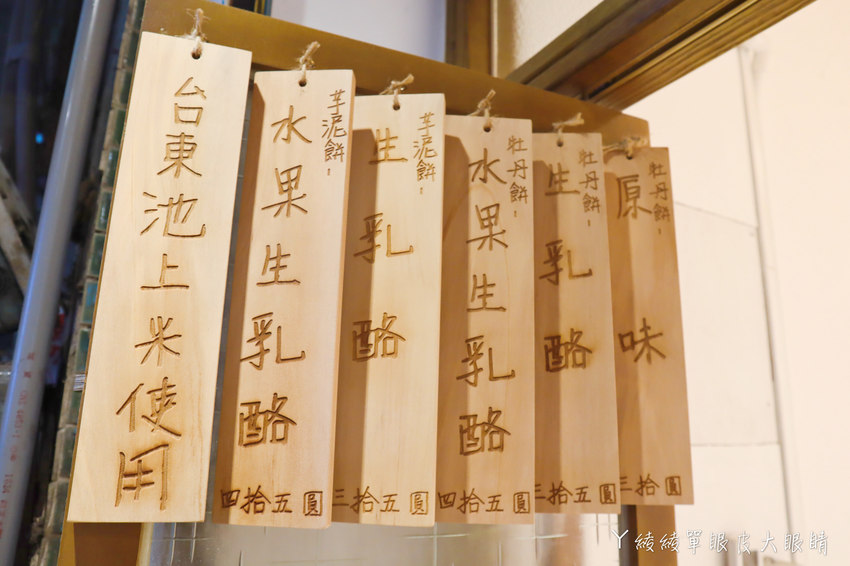 台東池上米使用
芋泥餅：
水果生乳酪
四拾五圓
芋泥餅：
生乳酪
三拾五圓
牡丹餅：
水果生乳酪
四拾五圓
牡丹餅：
生乳酪
三拾五圓
牡丹餅：
原味
三拾圓
ㄚ綾綾單眼皮大眼睛